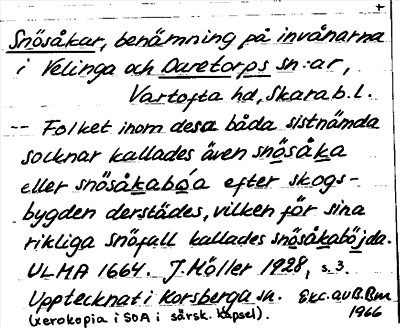 Snösåkar, benämning på invånarna
i Velinga och Daretorps sn:ar,
Vartofta hd, Skarab.l.
-- Folket inom desa båda sistnämda
socknar kallades även snösåka
eller snösåkabóa efter skogs-
bygden derstädes, vilken för sina
rikliga snöfall kallades snösåkaböjda.
ULMA 1664. J. Möller 1928, s. 3.
Upptecknat i Korsberga sn. Exc. av B. Bm
(xerokopia i SOA i särsk. kapsel). 1966